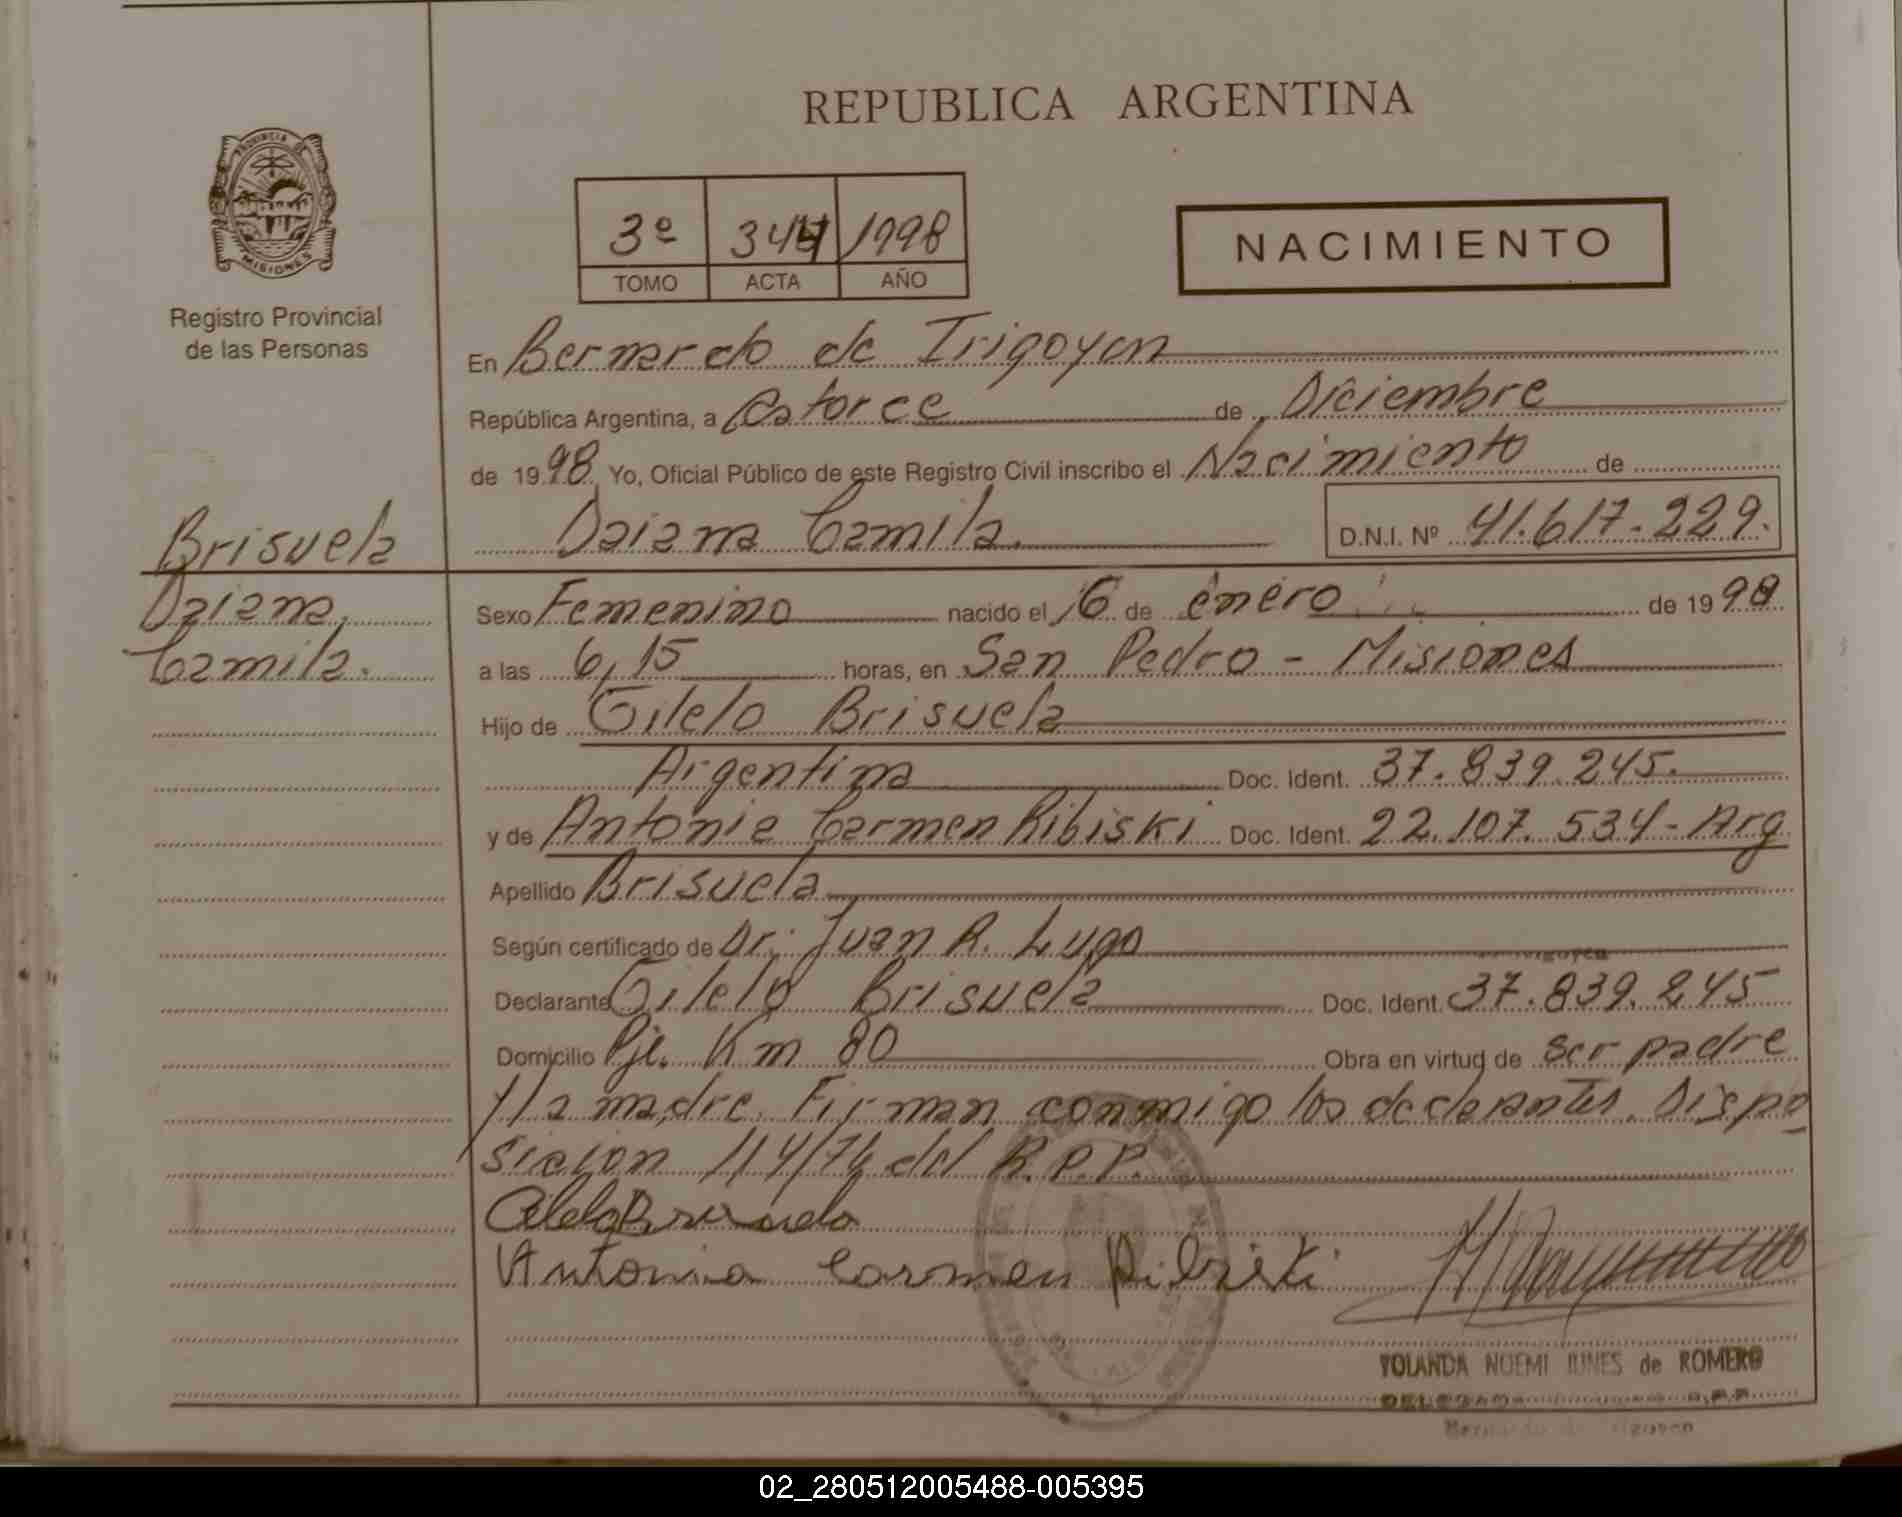 REPUBLICA ARGENTINA
PROVINCIA DE
MISIONES
Registro Provincial
de las Personas
3º 344 1998
TOMO ACTA AÑO
NACIMIENTO
En Bernardo de Irigoyen
República Argentina, a Catorce de Diciembre
de 1998 Yo, Oficial Público de este Registro Civil inscribo el Nacimiento de
Daiana Camila. D.N.I. Nº 41.617.229.
Brisuela
Daiana
Camila.
Sexo Femenino nacido el 16 de enero de 1998
a las 6,15 horas, en San Pedro - Misiones
Hijo de Cilelo Brisuela
Argentina Doc. Ident. 37.839.245.
y de Antonia Carmen Ribiski Doc. Ident. 22.107.534 - Arg
Apellido Brisuela
Según certificado de Dr. Juan R. Lugo
Declarante Cilelo Brisuela Doc. Ident. 37.839.245
Domicilio Pje. Km 80 Obra en virtud de ser padre
y la madre. Firman conmigo los declarantes. Dispo
sicion 114/76 del R.P.P.
Antonia Carmen Ribiski
YOLANDA NOEMI de ROMERO
Bernardo de Irigoyen
02_280512005488-005395